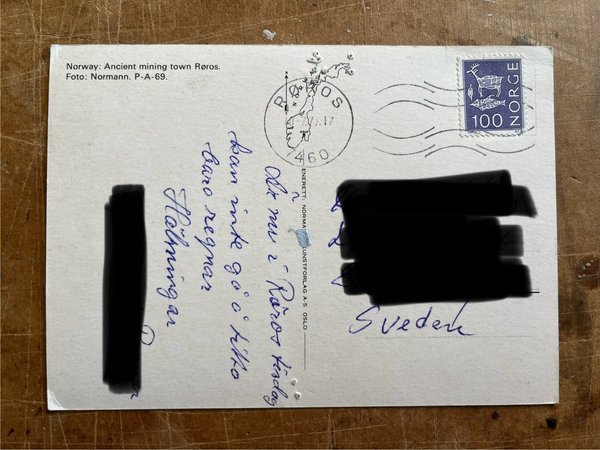 Norway: Ancient mining town Røros.
Foto: Normann. P-A-69.
RØROS
7460
100 NORGE
nu i Røros tisdag
kan inte gå o titta
bara regnar
Hälsningar
ENERETT: KUNSTFORLAG A-S OSLO
Sveden